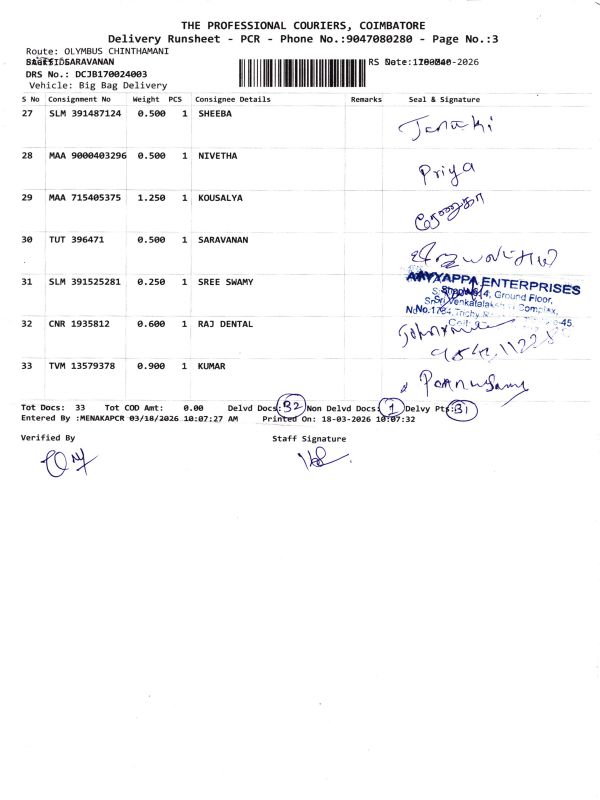 THE PROFESSIONAL COURIERS, COIMBATORE
Delivery Runsheet - PCR - Phone No.:9047080280 - Page No.:3
Route: OLYMBUS CHINTHAMANI
SARAVANAN
DRS No.: DCJB170024003
Vehicle: Big Bag Delivery
S No Consignment No Weight PCS Consignee Details Remarks Seal & Signature
27 SLM 391487124 0.500 1 SHEEBA Janaki
28 MAA 9000403296 0.500 1 NIVETHA Priya
29 MAA 715405375 1.250 1 KOUSALYA
30 TUT 396471 0.500 1 SARAVANAN
31 SLM 391525281 0.250 1 SREE SWAMY AYYAPPA ENTERPRISES
Ground Floor,
Complex,
32 CNR 1935812 0.600 1 RAJ DENTAL
33 TVM 13579378 0.900 1 KUMAR
Tot Docs: 33 Tot COD Amt: 0.00 Delvd Docs: 32 Non Delvd Docs: 1 Delvy Pts: 31
Entered By :MENAKAPCR 03/18/2026 10:07:27 AM Printed On: 18-03-2026 10:07:32
Verified By Staff Signature